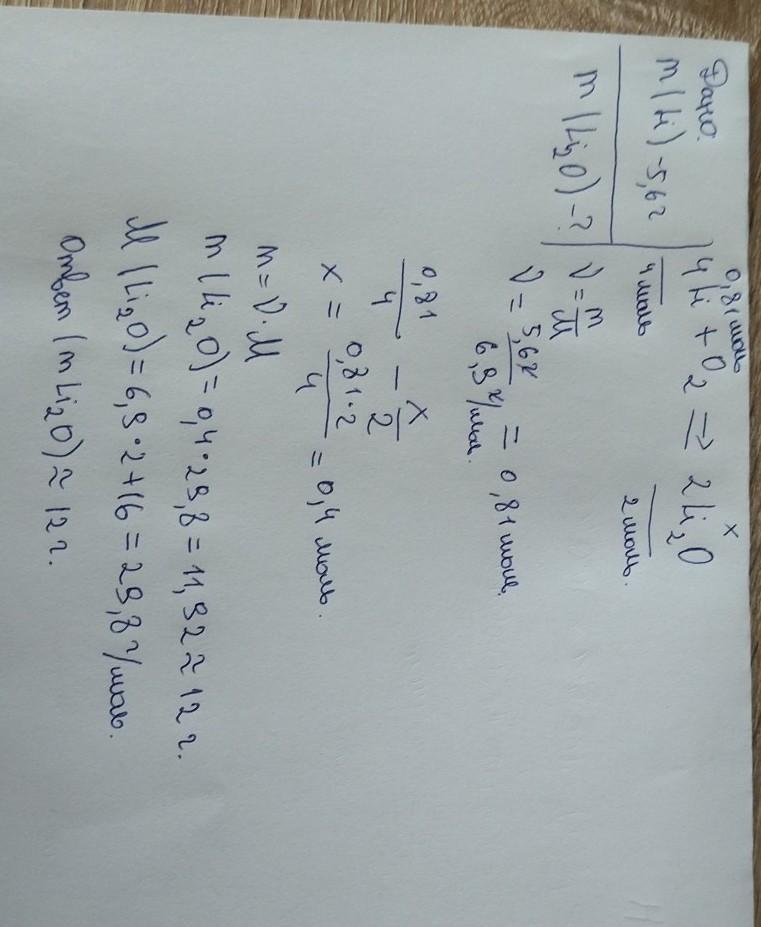 Дано:
m(Li)-5,6г
m(Li₂O)-?
0,81моль x
4Li + O₂ => 2Li₂O
4моль 2моль.
ν = m/M
ν = 5,6г/6,9г/моль. = 0,81моль.
0,81/4 – x/2
x = 0,81·2/4 = 0,4 моль.
m = ν·M
m(Li₂O) = 0,4·29,8 = 11,92 ≈ 12 г.
M(Li₂O) = 6,9·2+16 = 29,8г/моль.
Ответ (mLi₂O) ≈ 12 г.